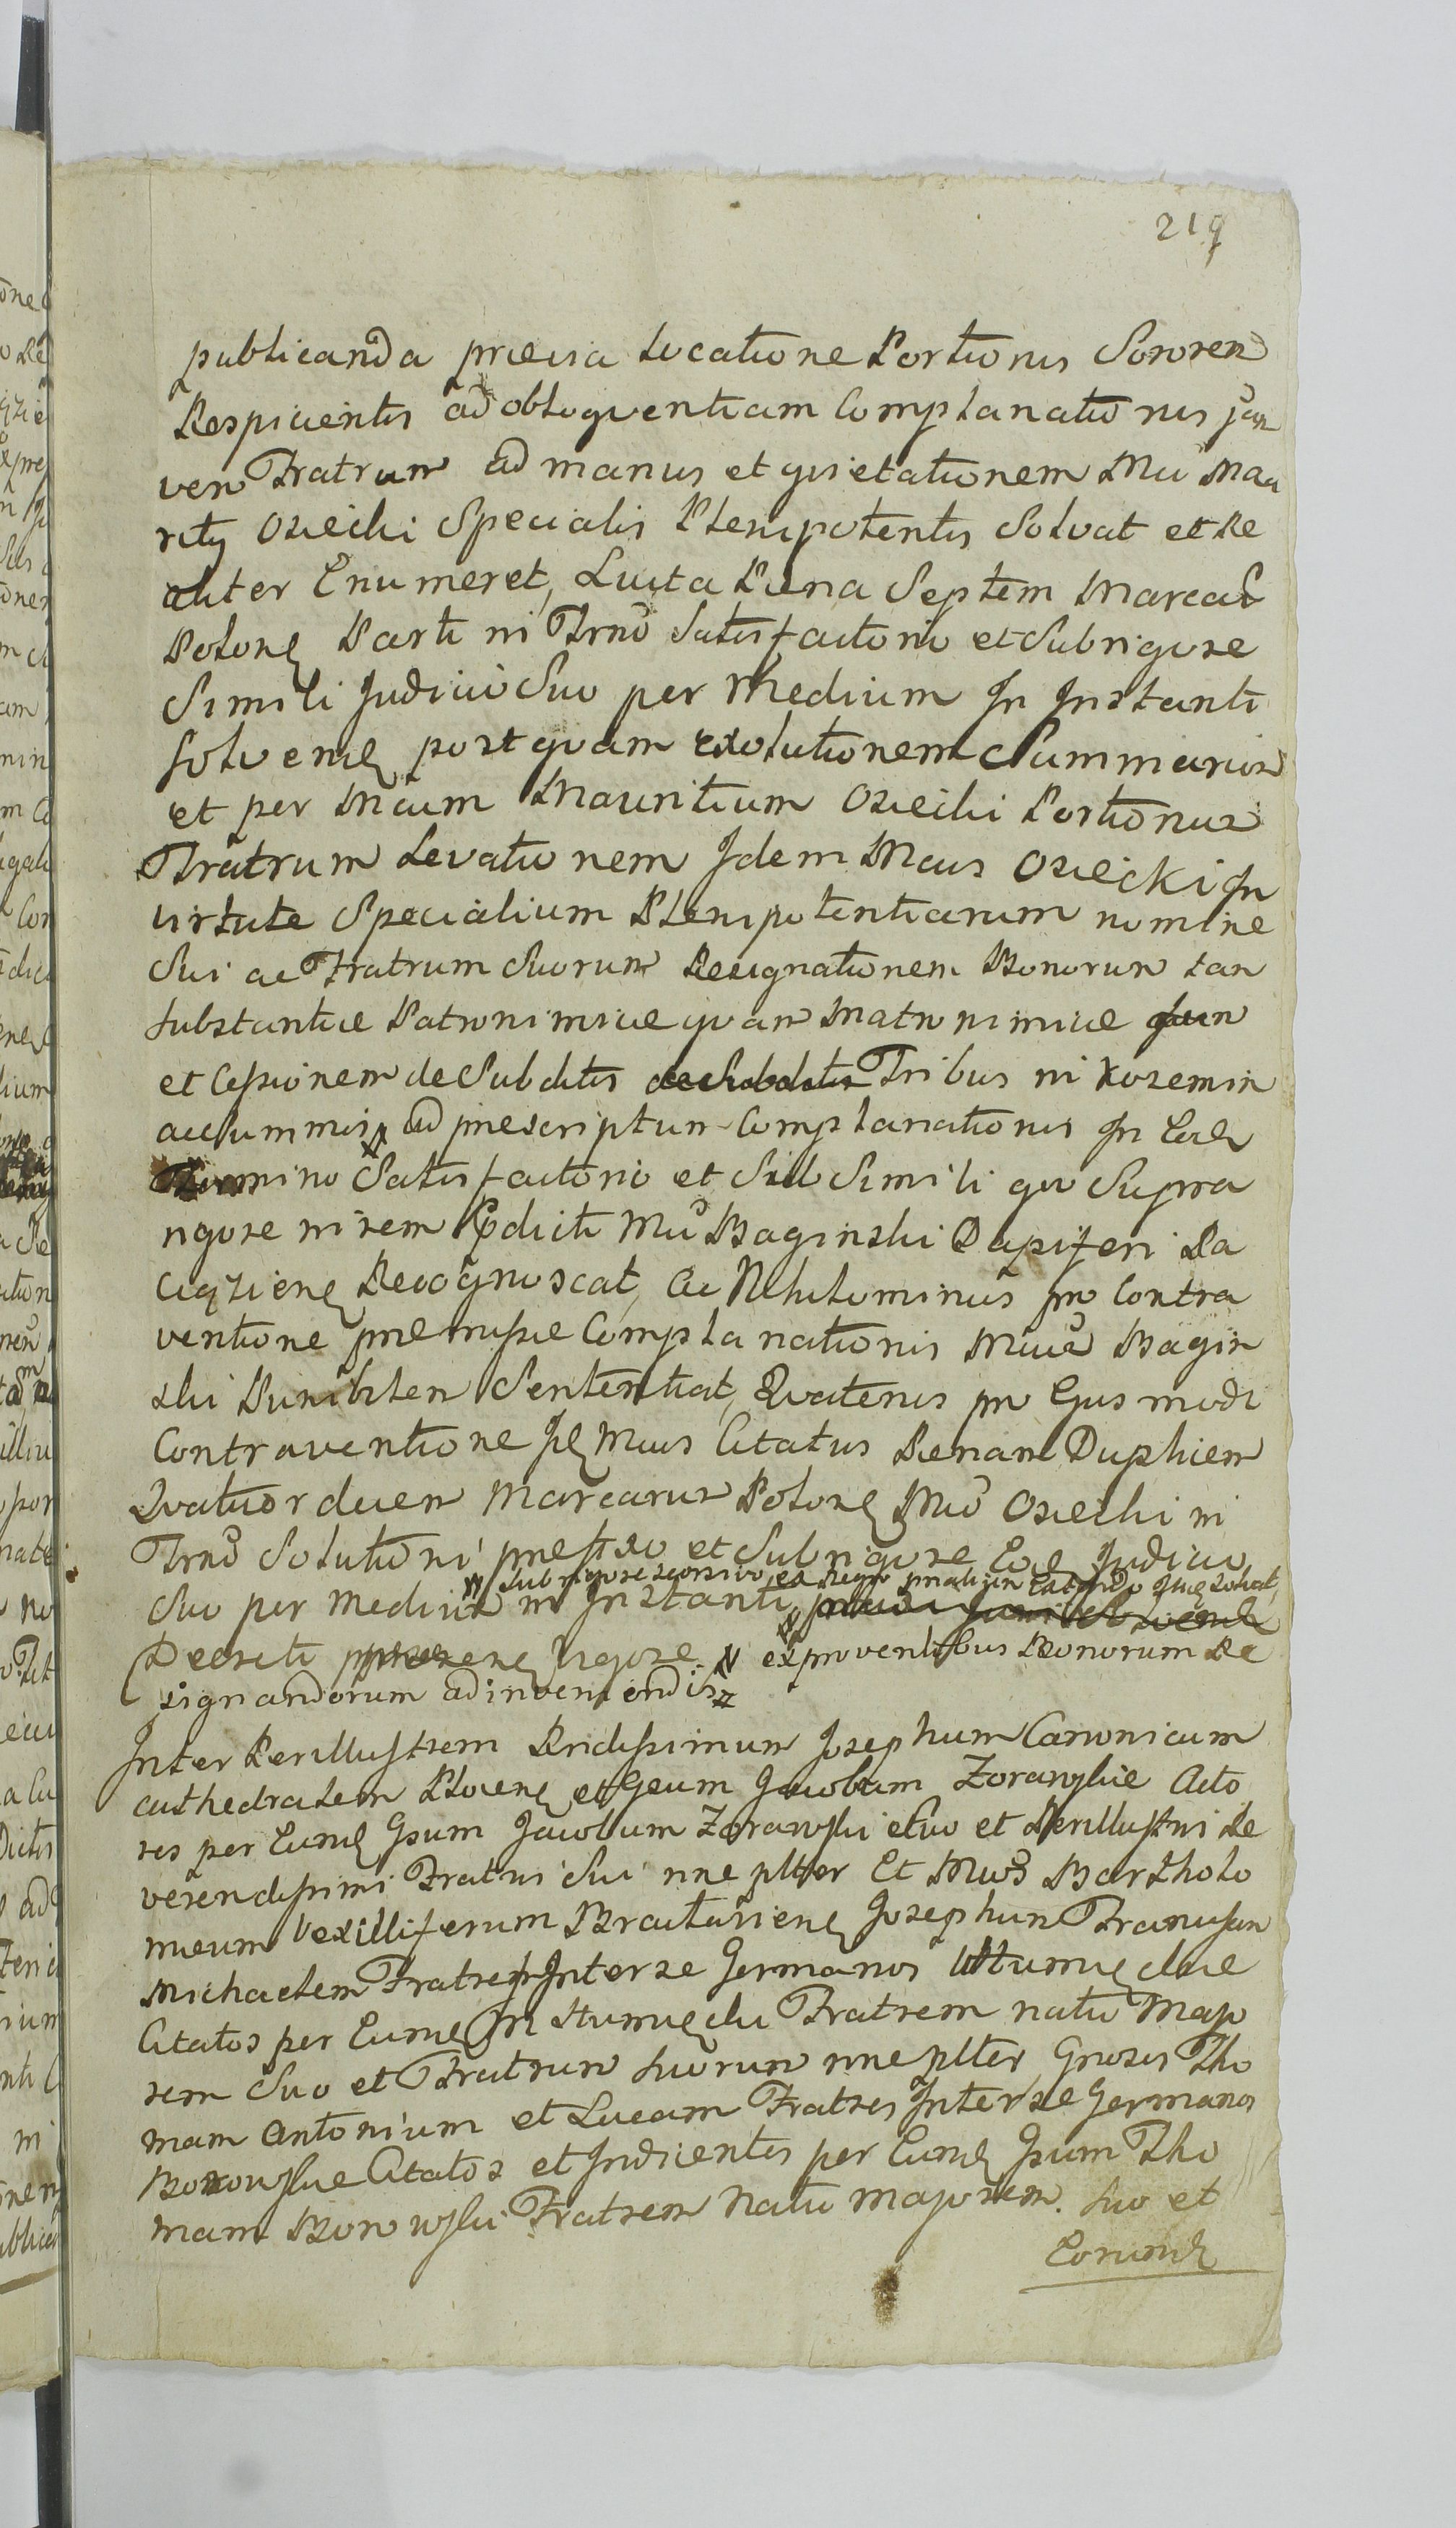 219
publicanda previa Locatione Portionis Sororem
Respicientis ad obloquentiam Complanationis Jur
ven Fratrum ad manus et quietationem Mci Mau
rity Osiecki Specialis Plenipotentis Solvat et Re
aliter Enumeret, Luita Pena Septem Marcas
Polong Parti in Trno Satisfactorio et Sub rigore
Simili Judicio Suo per Medium In Instanti
solveng post quam exolutionem Summarum
et per Mcum Mauritium Osiecki Portionis
Fratrum Levationem Idem Mcus Osiecki In
virtute Specialium Plenipotentiarum nomine
Sui ac Fratrum Suorum Resignationem Bonorum tam
substantiae Patronimicae quam Matronimicae
et Cessionem de Subditis de Subditis Tribus in Kozemin
ac Summis ad prescriptum Complanationis In Eod
Termino Satisfactorio et Sub Simili qo Supra
rigore in rem Edicti Mci Baginski Dapiferi Ra
Recognoscat, Ac Nihilominus pro Contra
ventione premissae Complanationis Baginski
ski Punibilem Sententiat, Quatenus pro Ejus modi
Contraventione Mcus Citatus Penam Duplicem
Quatuordecem Marcarum Polong Mco Osiecki in
Trno Solutioni prefixo et Sub rigore Eod Judicio
sub rigore
Suo per Medium in Instanti
Decreti vigore. ex proventibus Bonorum Re
signandorum adinveniendis
Inter Perillustrem Rndissimum Josephum Canonicum
cathedralem Ploceng et Gsum Jacobum Zorawskie Acto
res per Eumd Gsum Jacobum Zorawski suo et Perillustri Re
verendissimi Fratris Sui nne plter Et Mcos Bartholo
meum Vexilliferum Josephum Franciscum
Michaelem Fratres Inter se Germanos
Citatos per Eumd Fratrem natu Majo
rem Suo et Fratrum Suorum nne plter, Gnosis Tho
mam Antonium et Lucam Fratres Inter se Germanos
Borowskie Citatos et Indicentes per Eumd Gsum Tho
mam Borowski Fratrem Natu majorem. Suo et
Eorumd